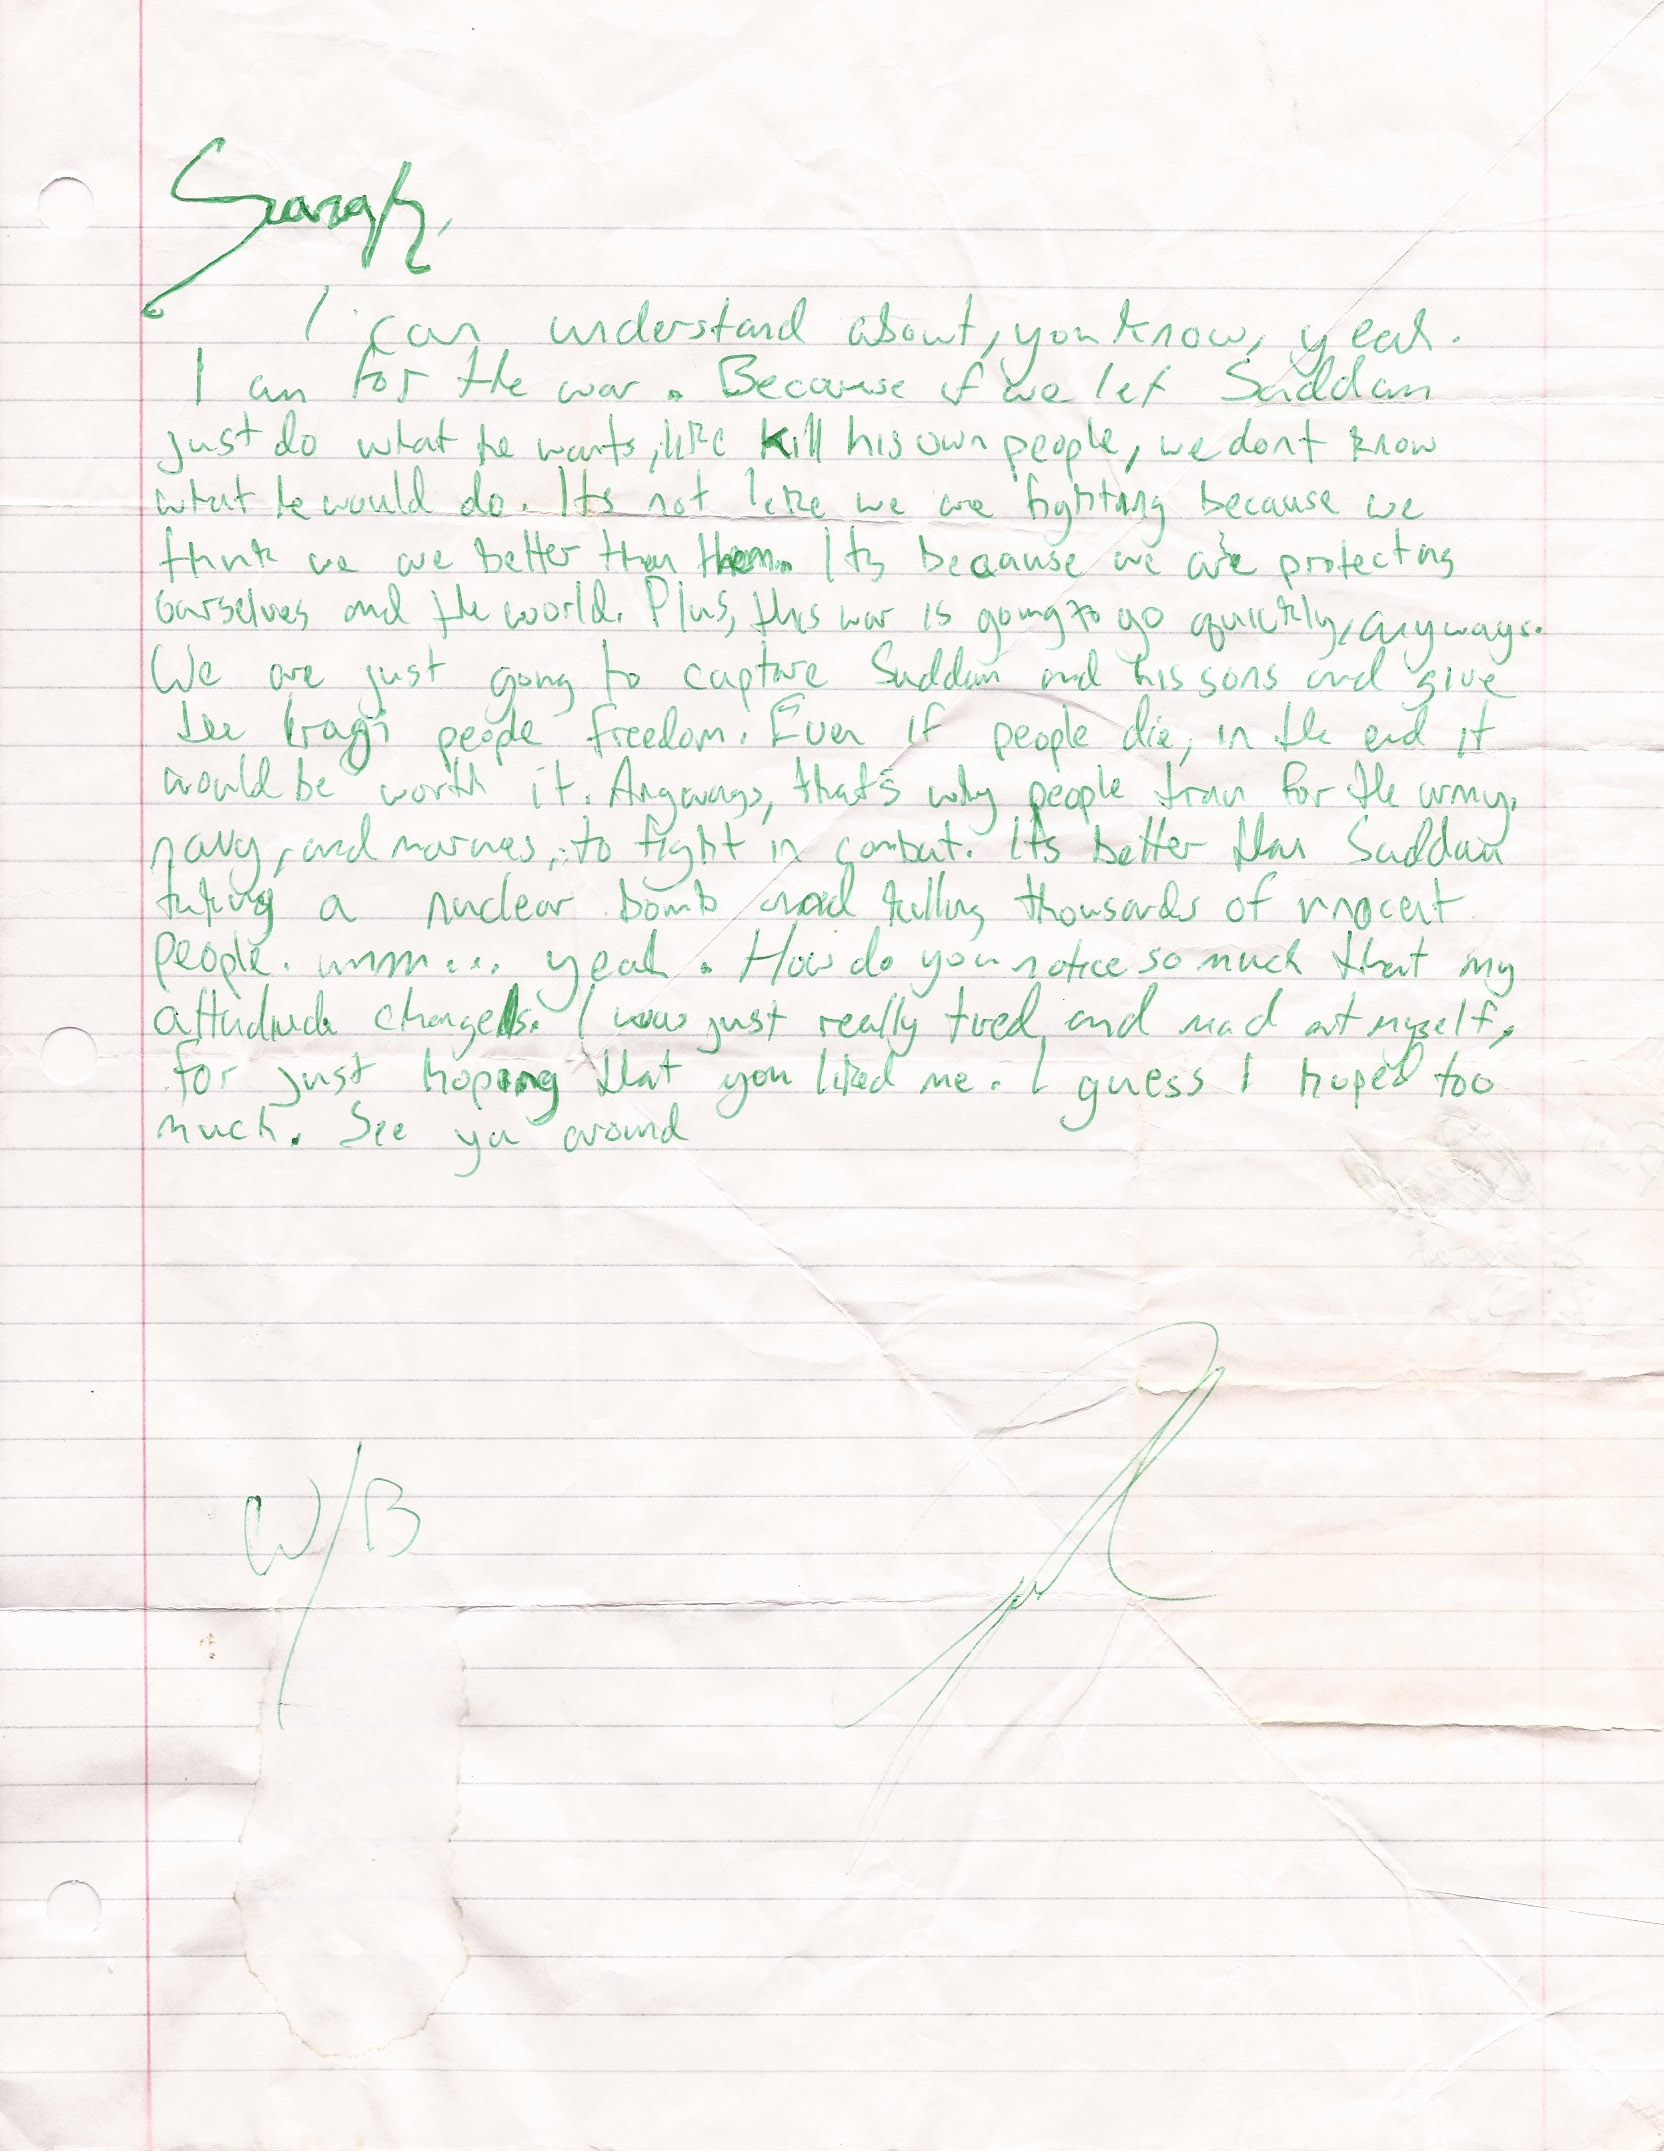 Sarah,
I can understand about, you know, yeah.
I am for the war. Because if we let Saddam
just do what he wants, like kill his own people, we dont know
what he would do. Its not like we are fighting because we
think we are better than them. Its because we are protecting
ourselves and the world. Plus, this war is going to go quickly, anyways.
We are just going to capture Saddam and his sons and give
the Iraqi people freedom. Even if people die, in the end it
would be worth it. Anyways, that's why people train for the army,
navy, and marines, to fight in combat. Its better than Saddam
taking a nuclear bomb and killing thousands of innocent
people. umm... yeah. How do you notice so much that my
attidude changes. I was just really tired and mad at myself,
for just hoping that you liked me. I guess I hoped too
much. See ya around
W/B